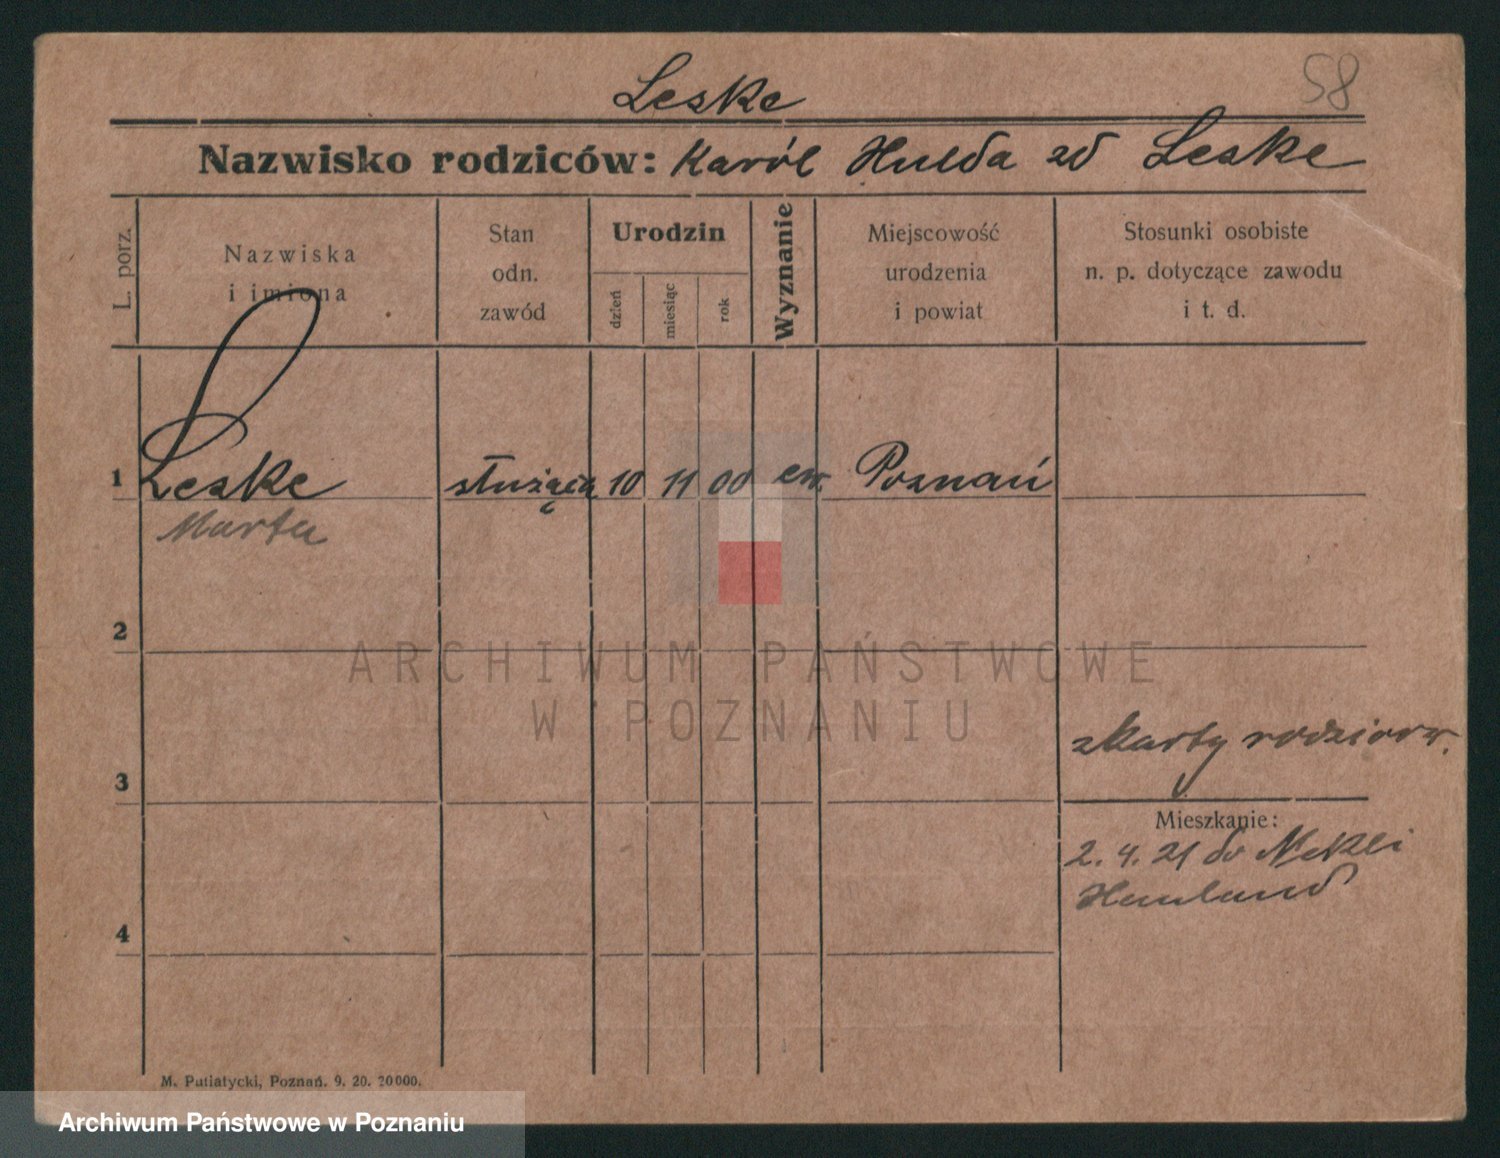 58
Leske
Nazwisko rodziców: Karól Hulda zd Leske
L. porz.
Nazwiska
i imiona
Stan
odn.
zawód
Urodzin
dzień
miesiąc
rok
Wyznanie
Miejscowość
urodzenia
i powiat
Stosunki osobiste
n. p. dotyczące zawodu
i t. d.
1 Leske służąca 10 11 00 ew. Poznań
Marta
2
ARCHIWUM PAŃSTWOWE
W POZNANIU
3 z karty rodziców.
Mieszkanie:
2. 4. 21 do Nekli
Hauland
4
M. Putiatycki, Poznań. 9. 20. 20000.
Archiwum Państwowe w Poznaniu